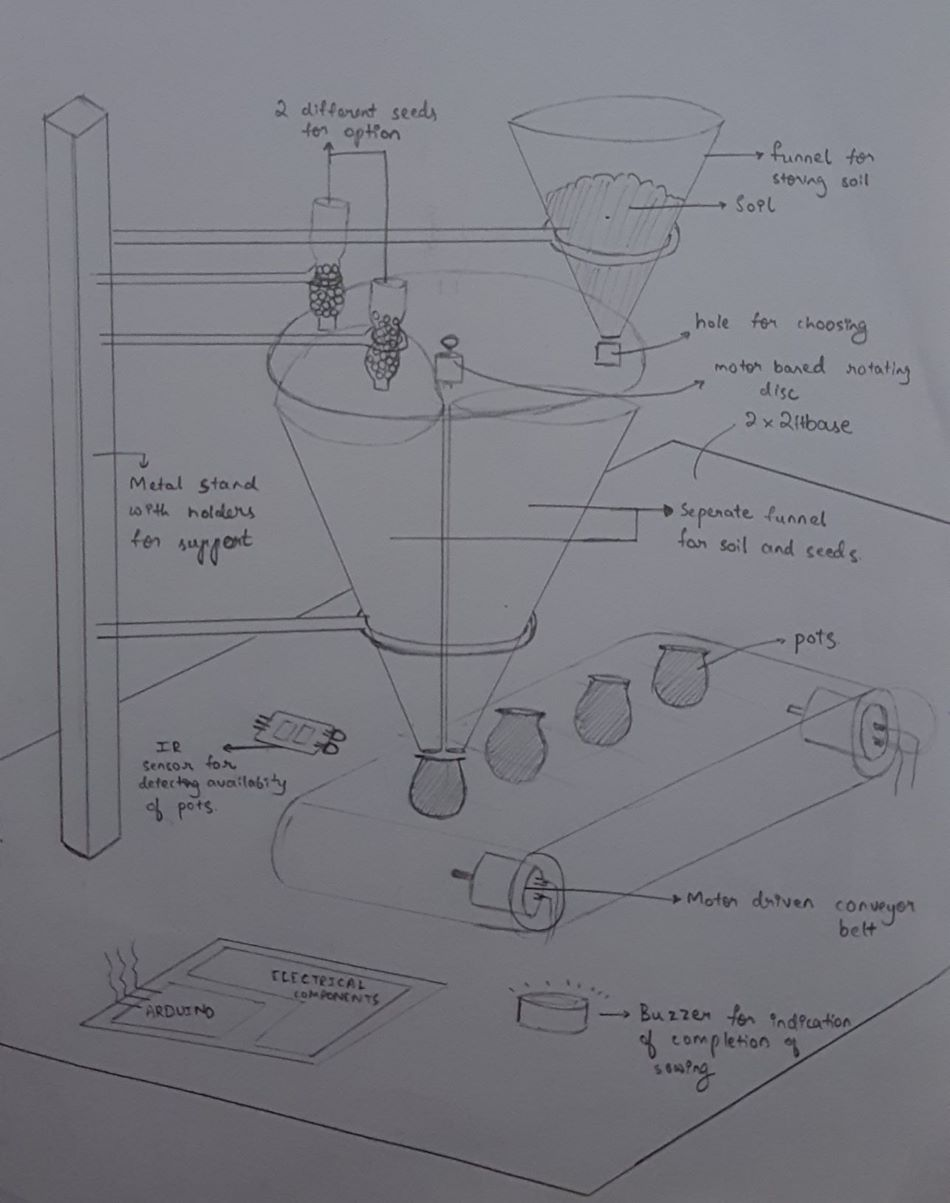 2 different seeds
for option
funnel for
storing soil
Soil
hole for choosing
motor based rotating
disc
2 x 2ftbase
Metal stand
with holders
for support
Seperate funnel
for soil and seeds.
pots.
IR
sensor for
detecting availabity
of pots.
Motor driven conveyor
belt
ELECTRICAL
COMPONENTS
ARDUINO
Buzzer for indication
of completion of
sowing